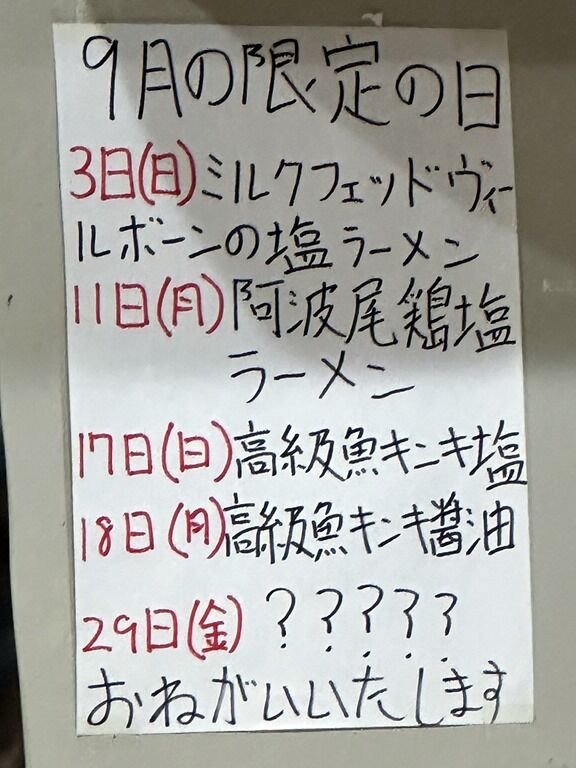 9月の限定の日
3日(日)ミルクフェッドヴィー
ルボーンの塩ラーメン
11日(月)阿波尾鶏塩
ラーメン
17日(日)高級魚キンキ塩
18日(月)高級魚キンキ醤油
29日(金)?????
おねがいいたします